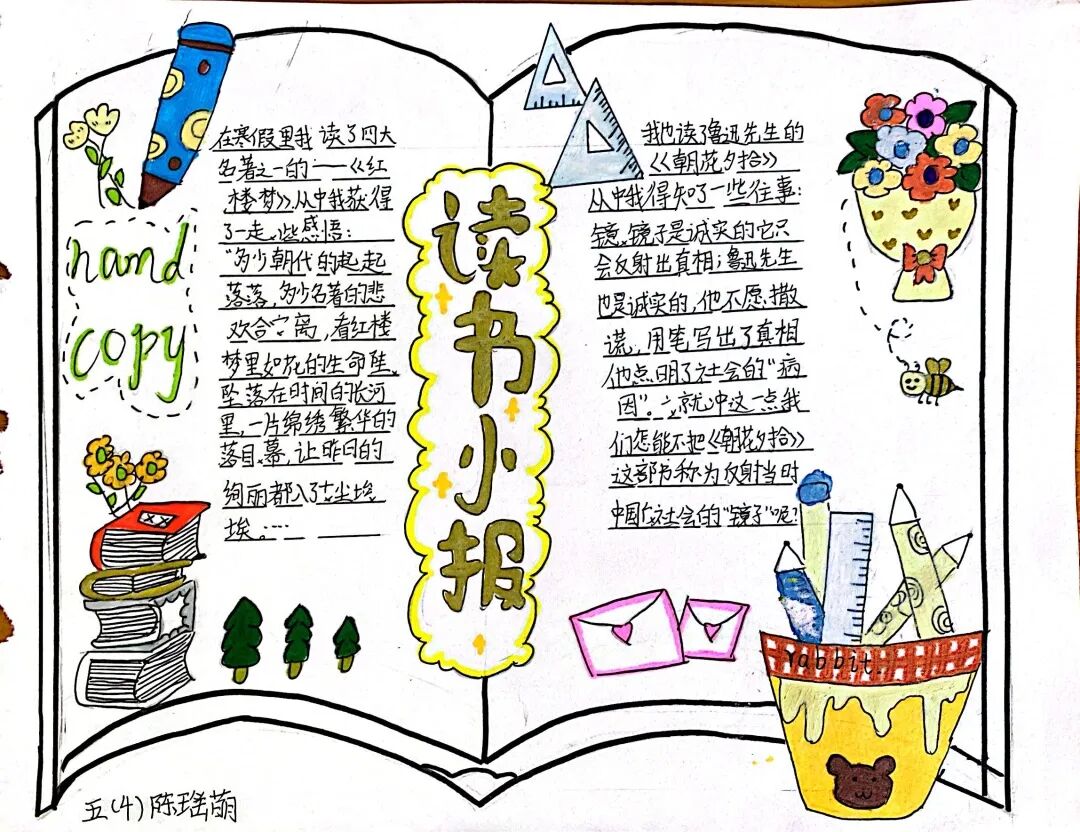 hand
copy
在寒假里我读了四大
名著之一的——《红
楼梦》.从中我获得
了一些感悟：
“多少朝代的起起
落落，多少名著的悲
欢合离，看红楼
梦里如花的生命陡
坠落在时间的长河
里，一片绵绣繁华的
落目幕，让昨日的
绚丽都入了尘埃
埃。……
读书小报
我也读了鲁迅先生的
《朝花夕拾》
从中我得知了一些往事：
镜，镜子是诚实的它只
会反射出真相；鲁迅先生
也是诚实的，他不愿撒
谎，用笔写出了真相
他点明了社会的“病
因”。就冲这一点我
们怎能不把《朝花夕拾》
这部书称为反射当时
中国社会的“镜子”呢？
rabbit
五(4)陈瑶萌